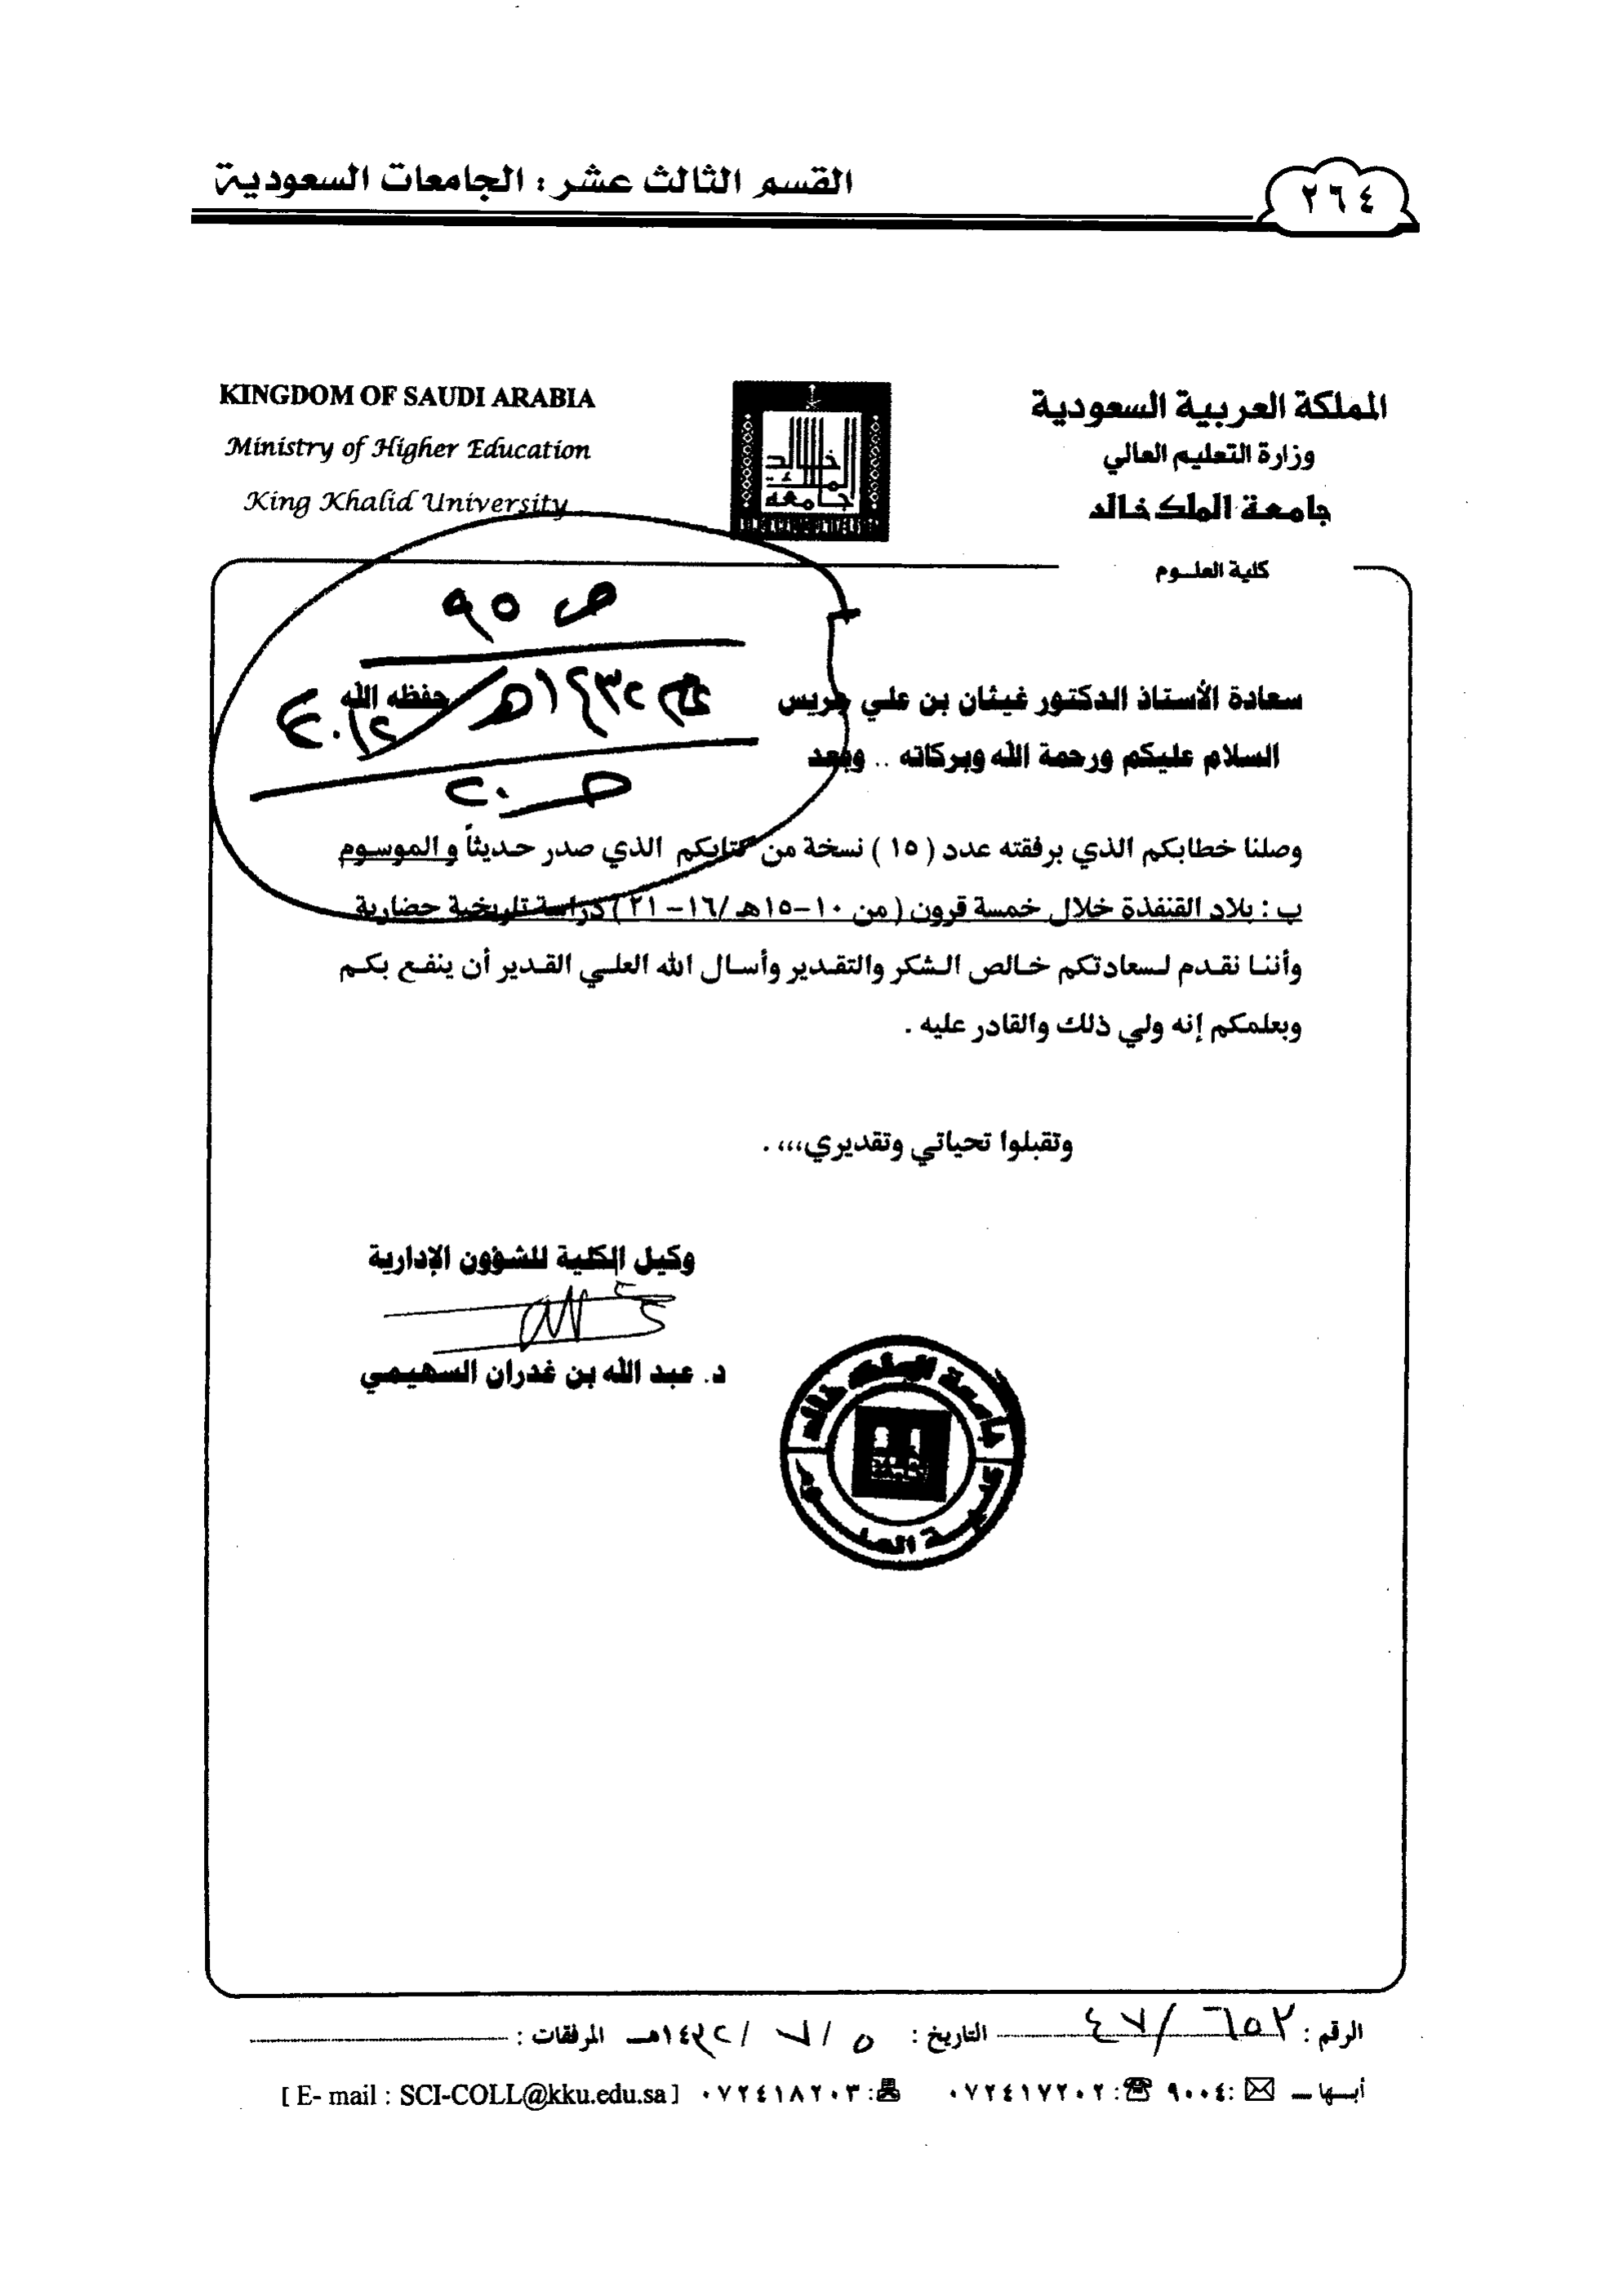 القسم الثالث عشر : الجامعات السعودية
٢٦٤
KINGDOM OF SAUDI ARABIA
Ministry of Higher Education
King Khalid University
جامعة الملك خالد
المملكة العربية السعودية
وزارة التعليم العالي
جامعة الملك خالد
كلية العلـوم
ص ٩٥
١٤٣٢هـ / ٢٠١١م
سعادة الأستاذ الدكتور غيثان بن علي جريس حفظه الله
السلام عليكم ورحمة الله وبركاته .. وبعد
وصلنا خطابكم الذي برفقته عدد ( ١٥ ) نسخة من كتابكم الذي صدر حديثاً و الموسوم
ب : بلاد القنفذة خلال خمسة قرون ( من ١٠-١٥هـ /١٦- ٢١) دراسة تاريخية حضارية
وأننا نقدم لسعادتكم خالص الشكر والتقدير وأسال الله العلي القدير أن ينفع بكم
وبعلمكم إنه ولي ذلك والقادر عليه .
وتقبلوا تحياتي وتقديري،،، .
وكيل الكلية للشؤون الإدارية
د. عبد الله بن غدران السهيمي
جامعة الملك خالد
كلية العلوم
الرقم : ٤٧/٦٥٢ التاريخ : ٥ / ٧ / ١٤٣٢هـ المرفقات :
أبـها – ✉: ٩٠٠٤ ☎: ٠٧٢٤١٧٢٠٢ : ٠٧٢٤١٨٢٠٣ [ E- mail : SCI-COLL@kku.edu.sa ]